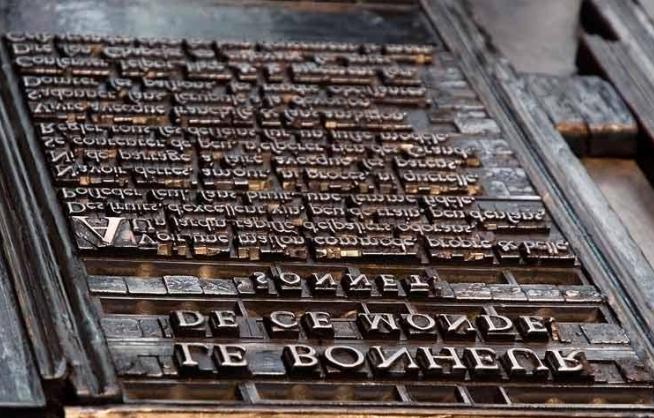 LE BONHEUR
DE CE MONDE
SONNET
AVoir une maison commode, propre & belle,
Un jardin tapissé d'espaliers odorans,
Des fruits, d'excellent vin, peu de train, peu d'enfans,
Posseder seul, sans bruit, une femme fidéle.
N'avoir dettes, amour, ni procés, ni querelle,
Ni de partage à faire avecque ses parens,
Se contenter de peu, n'espérer rien des Grands,
Régler tous ses desseins sur un juste modéle.
Vivre avecque franchise & sans ambition,
S'adonner sans scrupule à la dévotion,
Domter ses passions,
Conserver l'esprit
Dire